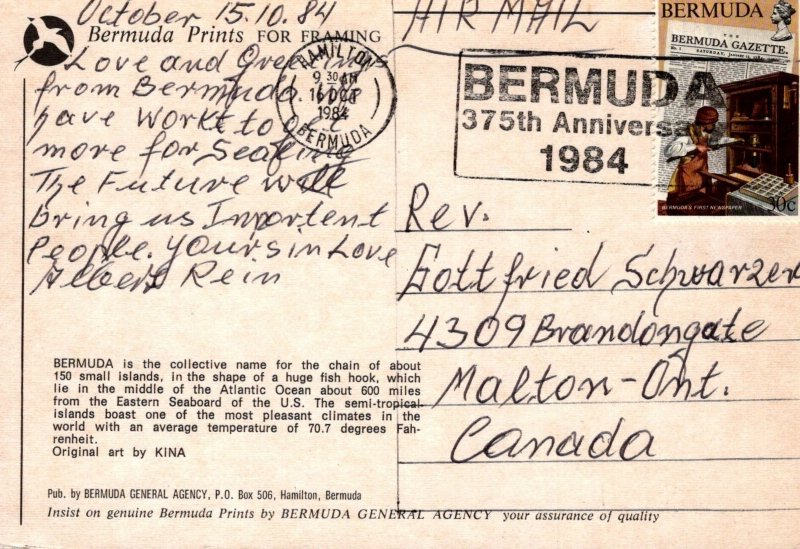 October 15.10.84
Bermuda Prints FOR FRAMING
Love and Greetings
from Bermuda.
have workt to
more for Seafire
The Future will
bring us Imortent
People. Yours in Love
Albert Rein
BERMUDA is the collective name for the chain of about
150 small islands, in the shape of a huge fish hook, which
lie in the middle of the Atlantic Ocean about 600 miles
from the Eastern Seaboard of the U.S. The semi-tropical
islands boast one of the most pleasant climates in the
world with an average temperature of 70.7 degrees Fah-
renheit.
Original art by KINA
Pub. by BERMUDA GENERAL AGENCY, P.O. Box 506, Hamilton, Bermuda
Insist on genuine Bermuda Prints by BERMUDA GENERAL AGENCY your assurance of quality
AIR MAIL
HAMILTON
9 30 AM
16 OCT
1984
BERMUDA
BERMUDA
375th Anniversary
1984
BERMUDA
THE
BERMUDA GAZETTE.
BERMUDA'S FIRST NEWSPAPER
30c
Rev.
Gottfried Schwarzer
4309 Brandongate
Malton-Ont.
Canada